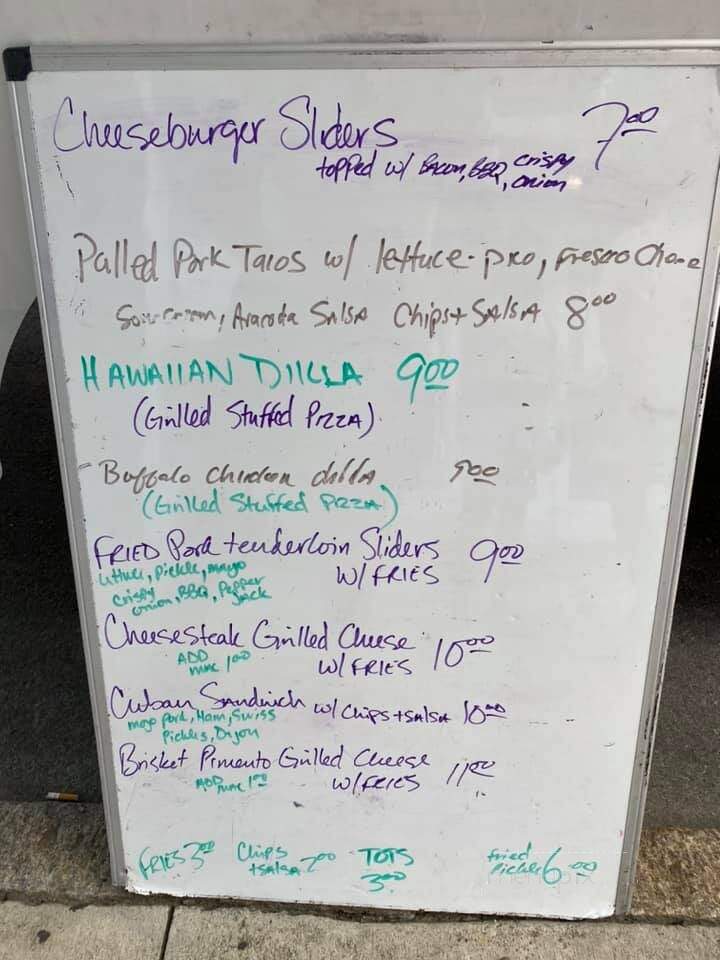 Cheeseburger Sliders 7.00
topped w/ Bacon, BBQ, crispy onion
Pulled Pork Tacos w/ lettuce, pico, Fresco
Sour cream, Salsa Chips + SAlSA 8.00
HAWAIIAN DILLA 9.00
(Grilled Stuffed Pizza)
Buffalo chicken dilla 9.00
(Grilled Stuffed PIZZA)
FRIED Pork tenderloin Sliders 9.00
lettuce, Pickle, mayo W/ FRIES
crispy onion, BBQ, Pepper Jack
Cheesesteak Grilled Cheese 10.00
ADD mac 1.00 W/FRIES
Cuban Sandwich w/ Chips + SAlSA 10.00
mojo Pork, Ham, Swiss
Pickles, Dijon
Brisket Pimento Grilled Cheese 11.00
ADD mac 1.00 W/FRIES
FRIES 3.00 Chips + SAlSA 2.00 TOTS 3.00 fried Pickles 6.00